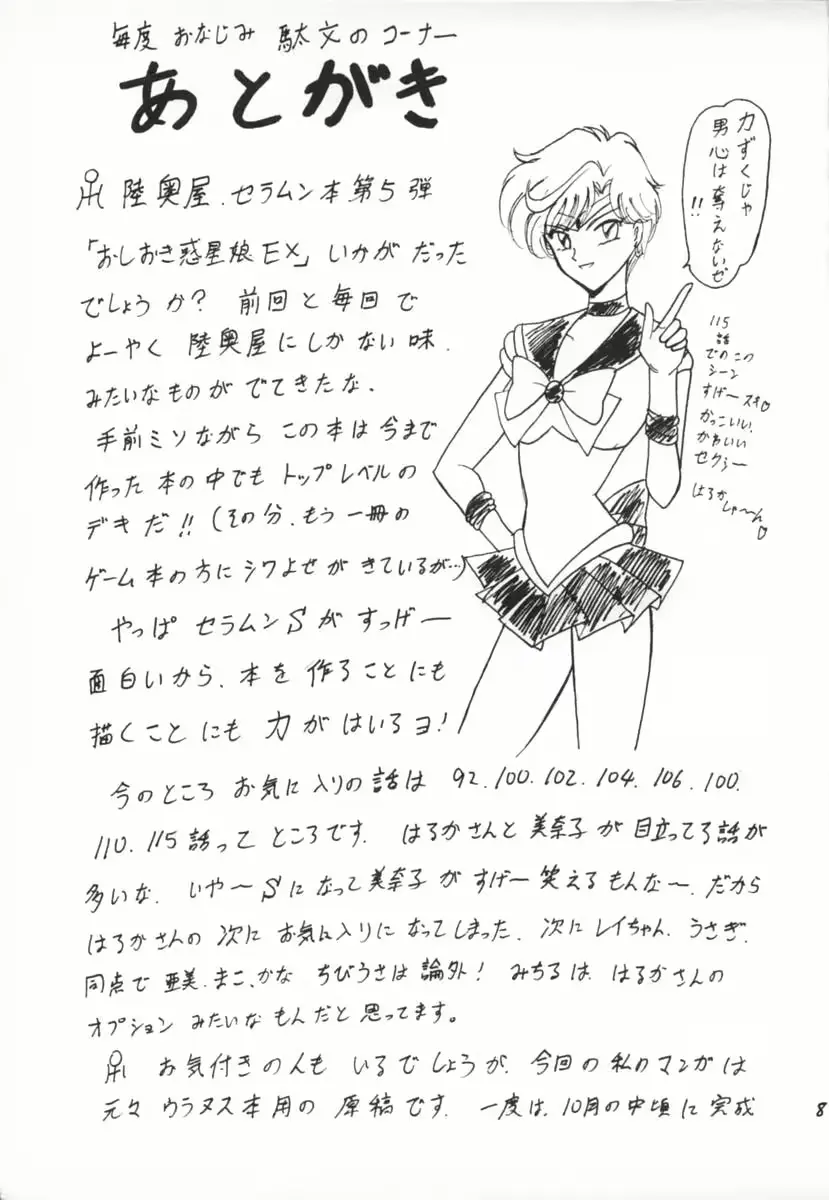 毎度 おなじみ 駄文のコーナー
あとがき
陸奥屋.セラムン本第5弾
「おしおき惑星娘EX」いかがだった
でしょうか? 前回と毎回で
よーやく 陸奥屋にしかない味.
みたいなものがでてきたな.
手前ミソながら この本は今まで
作った本の中でもトップレベルの
デキだ!!(その分.もう一冊の
ゲーム本の方にシワよせがきているが…)
やっぱ セラムンSがすっげー
面白いから、本を作ることにも
描くことにも力がはいるヨ!
今のところ お気に入りの話は 92.100.102.104.106.100.
110.115話って ところです. はるかさんと美奈子が目立ってる話が
多いな. いや〜Sになって美奈子がすげー笑えるもんな〜.だから
はるかさんの次にお気に入りになってしまった.次にレイちゃん.うさぎ.
同点で亜美.まこ、かな ちびうさは論外! みちるは.はるかさんの
オプションみたいなもんだと思ってます。
お気付きの人もいるでしょうが.今回の私のマンガは
元々ウラヌス本用の原稿です. 一度は.10月の中頃に完成
力ずくじゃ
男心は奪えないぜ
!!
115
話
でのこの
シーン
すげースキ♡
かっこいい.
かわいい
セクシー
はるか
しゃ〜ん♡
8